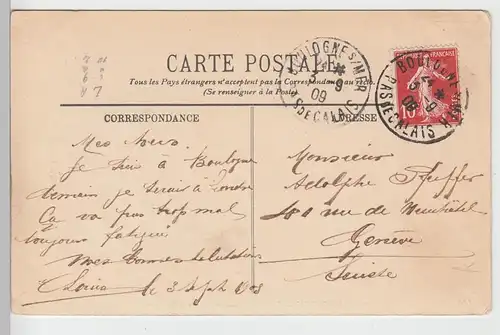 CARTE POSTALE
Tous les Pays étrangers n'acceptent pas la Correspondance au recto.
(Se renseigner à la Poste)
CORRESPONDANCE
ADRESSE
BOULOGNE S/MER
3 - 9
09
PAS DE CALAIS
BOULOGNE S/MER
3 - 9
09
PAS DE CALAIS
10
Je suis à Boulogne
demain je serai à Londre
Ça va pas trop mal
toujours fatigué
mes bonnes salutations
le 3 Sept
Monsieur
Adolphe Pfeffer
rue de Neuchatel
Genève
Suisse